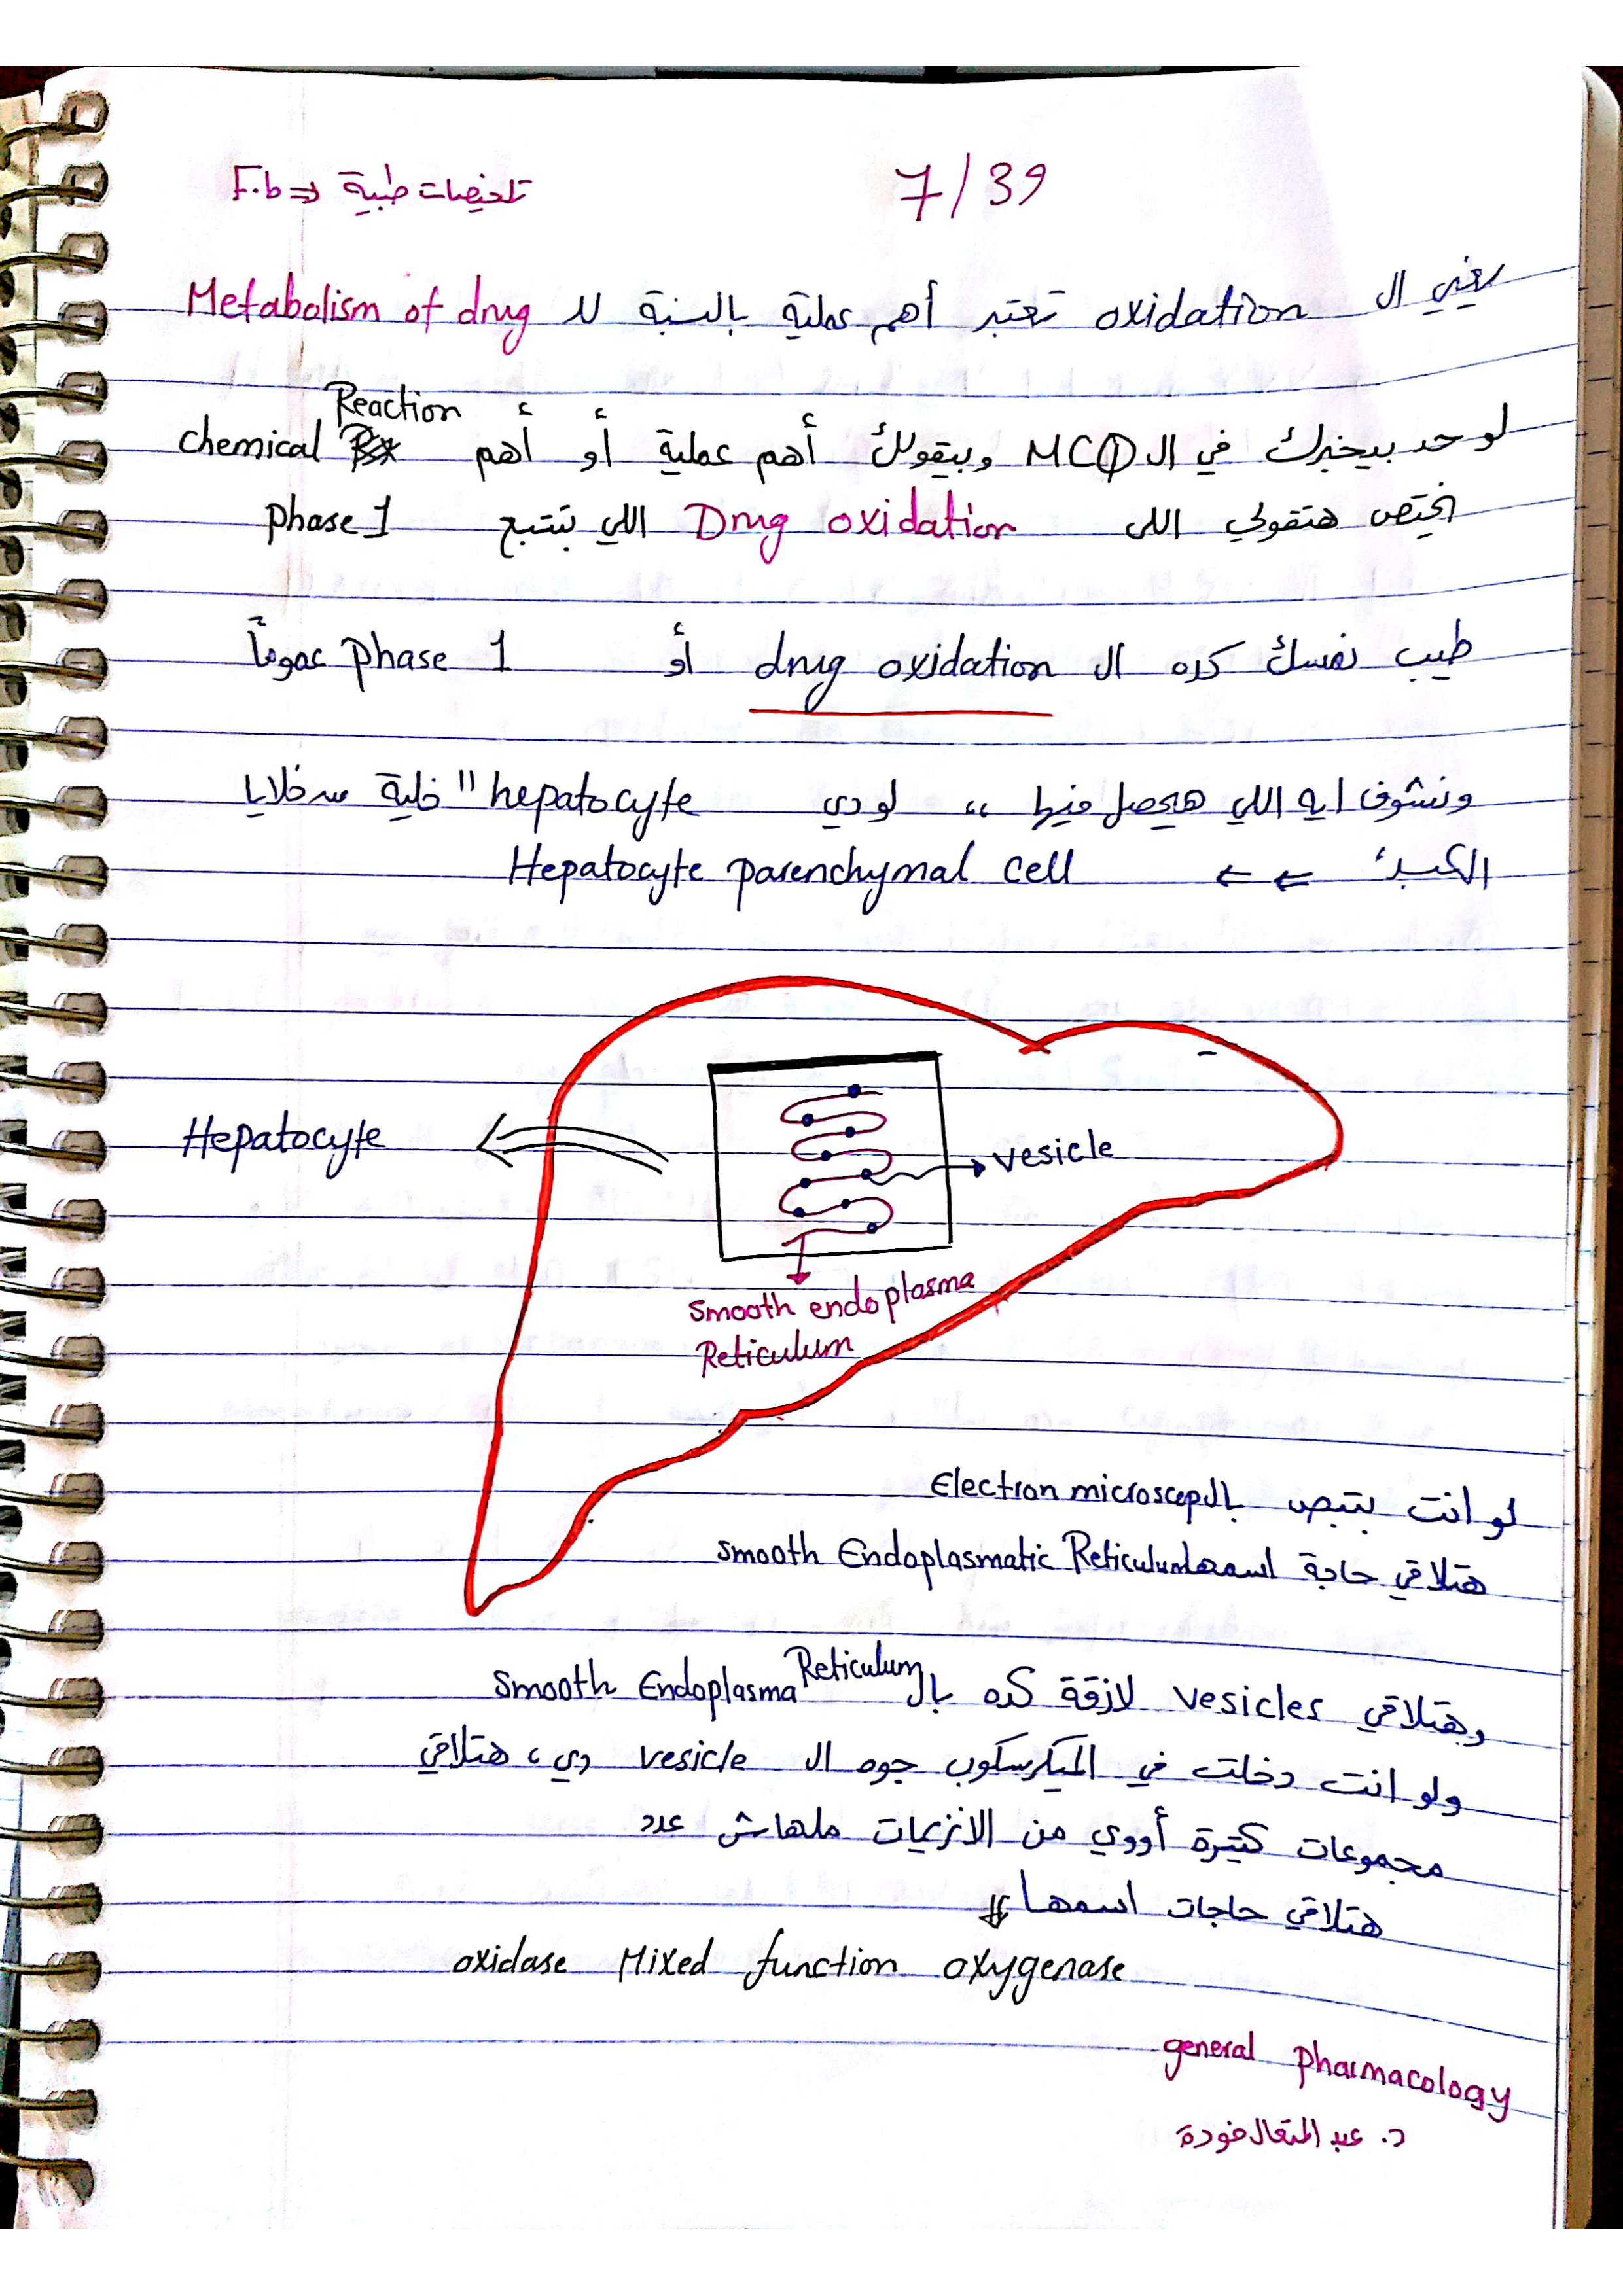 تلخيصات طبية ⇐ F.b
7/39
يعني ال oxidation تعتبر أهم عملية بالنسبة لل Metabolism of drug
لو حد بيخبرك في ال MCQ وبيقولك أهم عملية أو أهم chemical Reaction
هتقولي اللى Drug oxidation اللي بتتبع phase 1
طيب نفسك كده ال drug oxidation أو phase 1 عموماً
ونشوف ايه اللي هيحصل فيها ،، لو دي hepatocyte "خلية من خلايا
الكبد" ← ← Hepatocyte parenchymal cell
Hepatocyte
vesicle
smooth endoplasma
Reticulum
لو انت بتبص بال Electron microscop
هتلاقي حاجة اسمها smooth Endoplasmatic Reticulum
وهتلاقي vesicles لازقة كده بال Smooth Endoplasma Reticulum
ولو انت دخلت في الميكرسكوب جوه ال vesicle دي، هتلاقي
مجموعات كتيرة أووي من الانزيمات ملهاش عدد
هتلاقي حاجات اسمها
oxidase Mixed function oxygenase
general pharmacology
د. عبد المتعال فودة